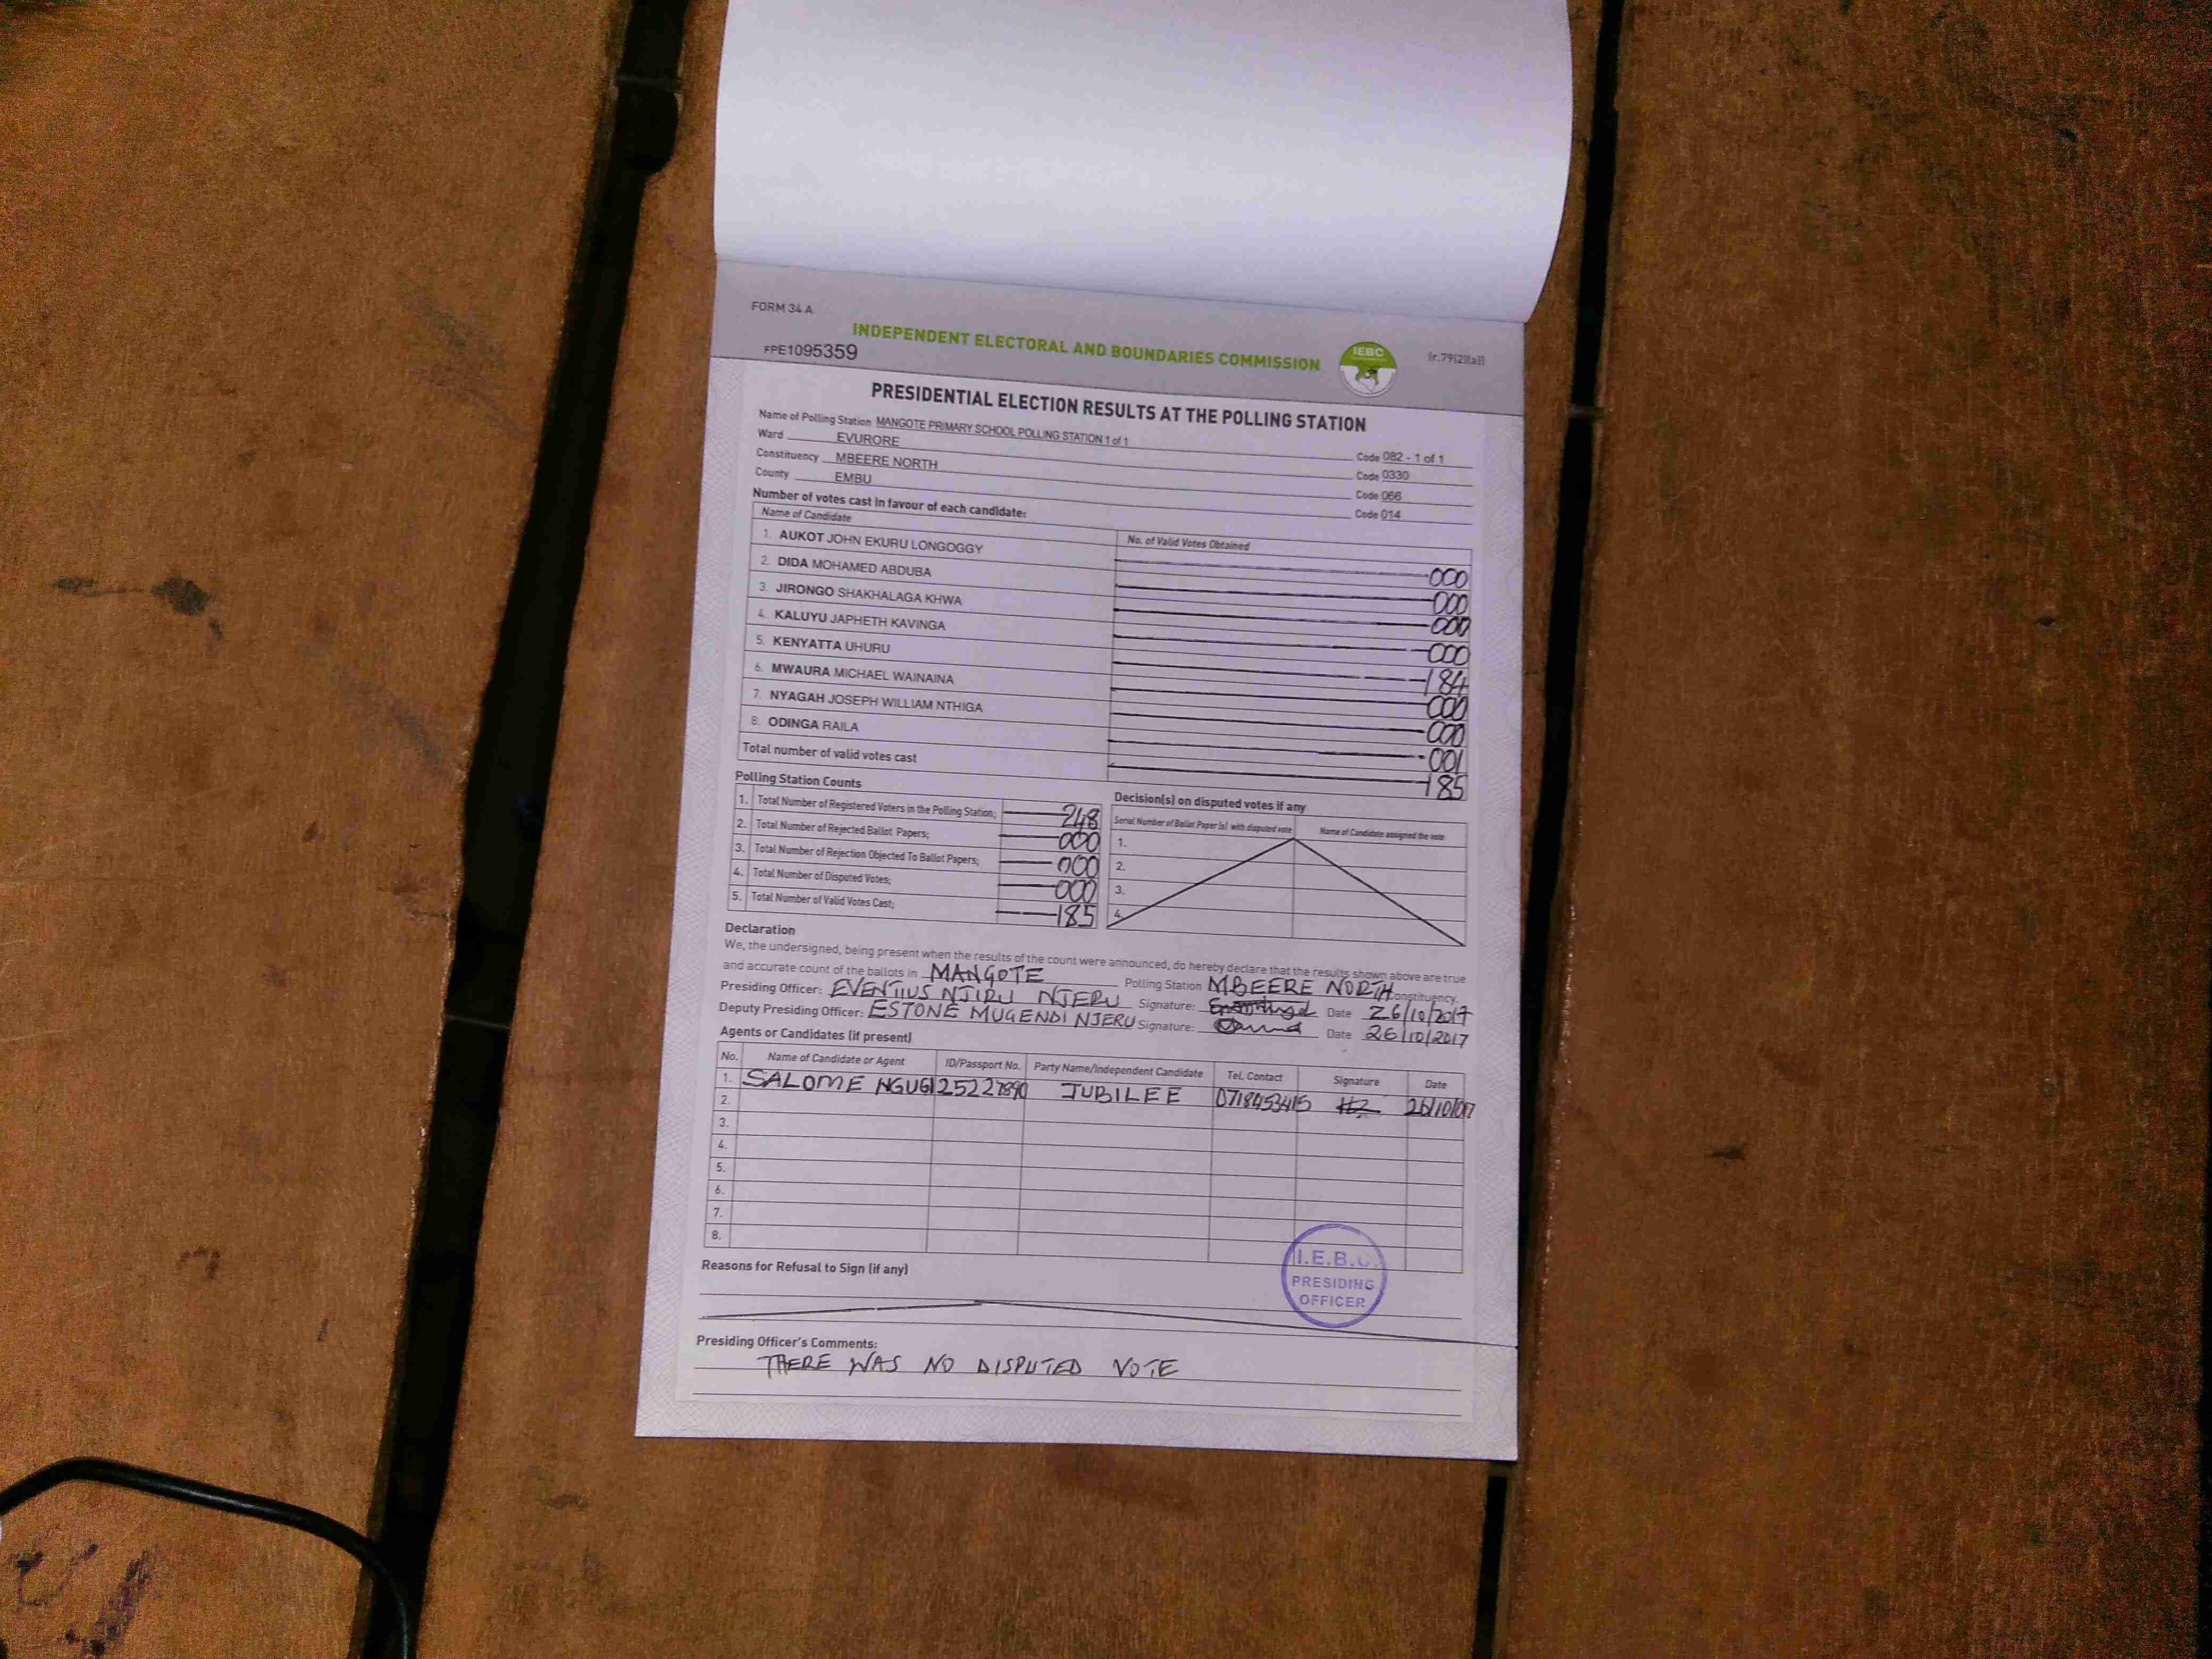 FORM 34 A
INDEPENDENT ELECTORAL AND BOUNDARIES COMMISSION
IEBC
(r.79(2)(a))
FPE1095359
PRESIDENTIAL ELECTION RESULTS AT THE POLLING STATION
Name of Polling Station MANGOTE PRIMARY SCHOOL POLLING STATION 1 of 1 Code 082 - 1 of 1
Ward EVURORE Code 0330
Constituency MBEERE NORTH Code 066
County EMBU Code 014
Number of votes cast in favour of each candidate:
Name of Candidate No. of Valid Votes Obtained
1. AUKOT JOHN EKURU LONGOGGY 000
2. DIDA MOHAMED ABDUBA 000
3. JIRONGO SHAKHALAGA KHWA 000
4. KALUYU JAPHETH KAVINGA 000
5. KENYATTA UHURU 184
6. MWAURA MICHAEL WAINAINA 000
7. NYAGAH JOSEPH WILLIAM NTHIGA 000
8. ODINGA RAILA 001
Total number of valid votes cast 185
Polling Station Counts
1. Total Number of Registered Voters in the Polling Station; 248
2. Total Number of Rejected Ballot Papers; 000
3. Total Number of Rejection Objected To Ballot Papers; 000
4. Total Number of Disputed Votes; 000
5. Total Number of Valid Votes Cast; 185
Decision(s) on disputed votes if any
Serial Number of Ballot Paper (s) with disputed vote Name of Candidate assigned the vote
1.
2.
3.
4.
Declaration
We, the undersigned, being present when the results of the count were announced, do hereby declare that the results shown above are true
and accurate count of the ballots in MANGOTE Polling Station MBEERE NORTH Constituency.
Presiding Officer: NJIRU NJERU Signature: Date 26/10/2017
Deputy Presiding Officer: ESTONE MUGENDI NJERU Signature: Date 26/10/2017
Agents or Candidates (if present)
No. Name of Candidate or Agent ID/Passport No. Party Name/Independent Candidate Tel. Contact Signature Date
1. SALOME NGUGI 25227890 JUBILEE 0718453415
2.
3.
4.
5.
6.
7.
8.
I.E.B.C.
PRESIDING
OFFICER
Reasons for Refusal to Sign (if any)
Presiding Officer's Comments:
THERE WAS NO DISPUTED VOTE